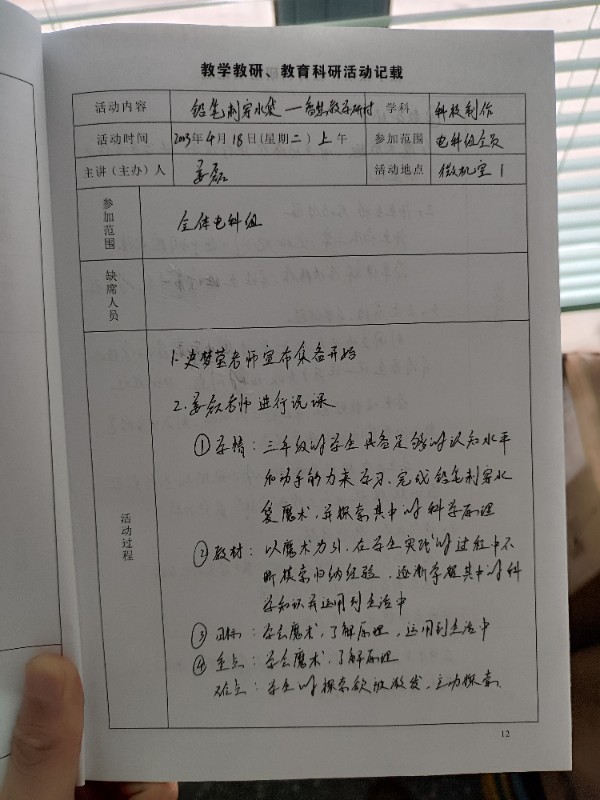 教学教研、教育科研活动记载
活动内容 铅笔刺穿水袋——智慧教学研讨 学科 科技制作
活动时间 2023年4月18日(星期二)上午 参加范围 电科组全员
主讲（主办）人 姜磊 活动地点 微机室1
参加范围 全体电科组
缺席人员
活动过程
1.史梦莹老师宣布集备开始
2.姜磊老师进行说课
①学情：三年级的学生具备足够的认知水平
和动手能力来学习、完成铅笔刺穿水
袋魔术,并探索其中的科学原理
②教材：以魔术为引,在学生实践的过程中不
断摸索归纳经验,逐渐掌握其中的科
学知识并运用到生活中
③目标：学会魔术,了解原理,运用到生活中
④重点：学会魔术,了解原理
难点：学生的探索欲被激发,主动探索.
12